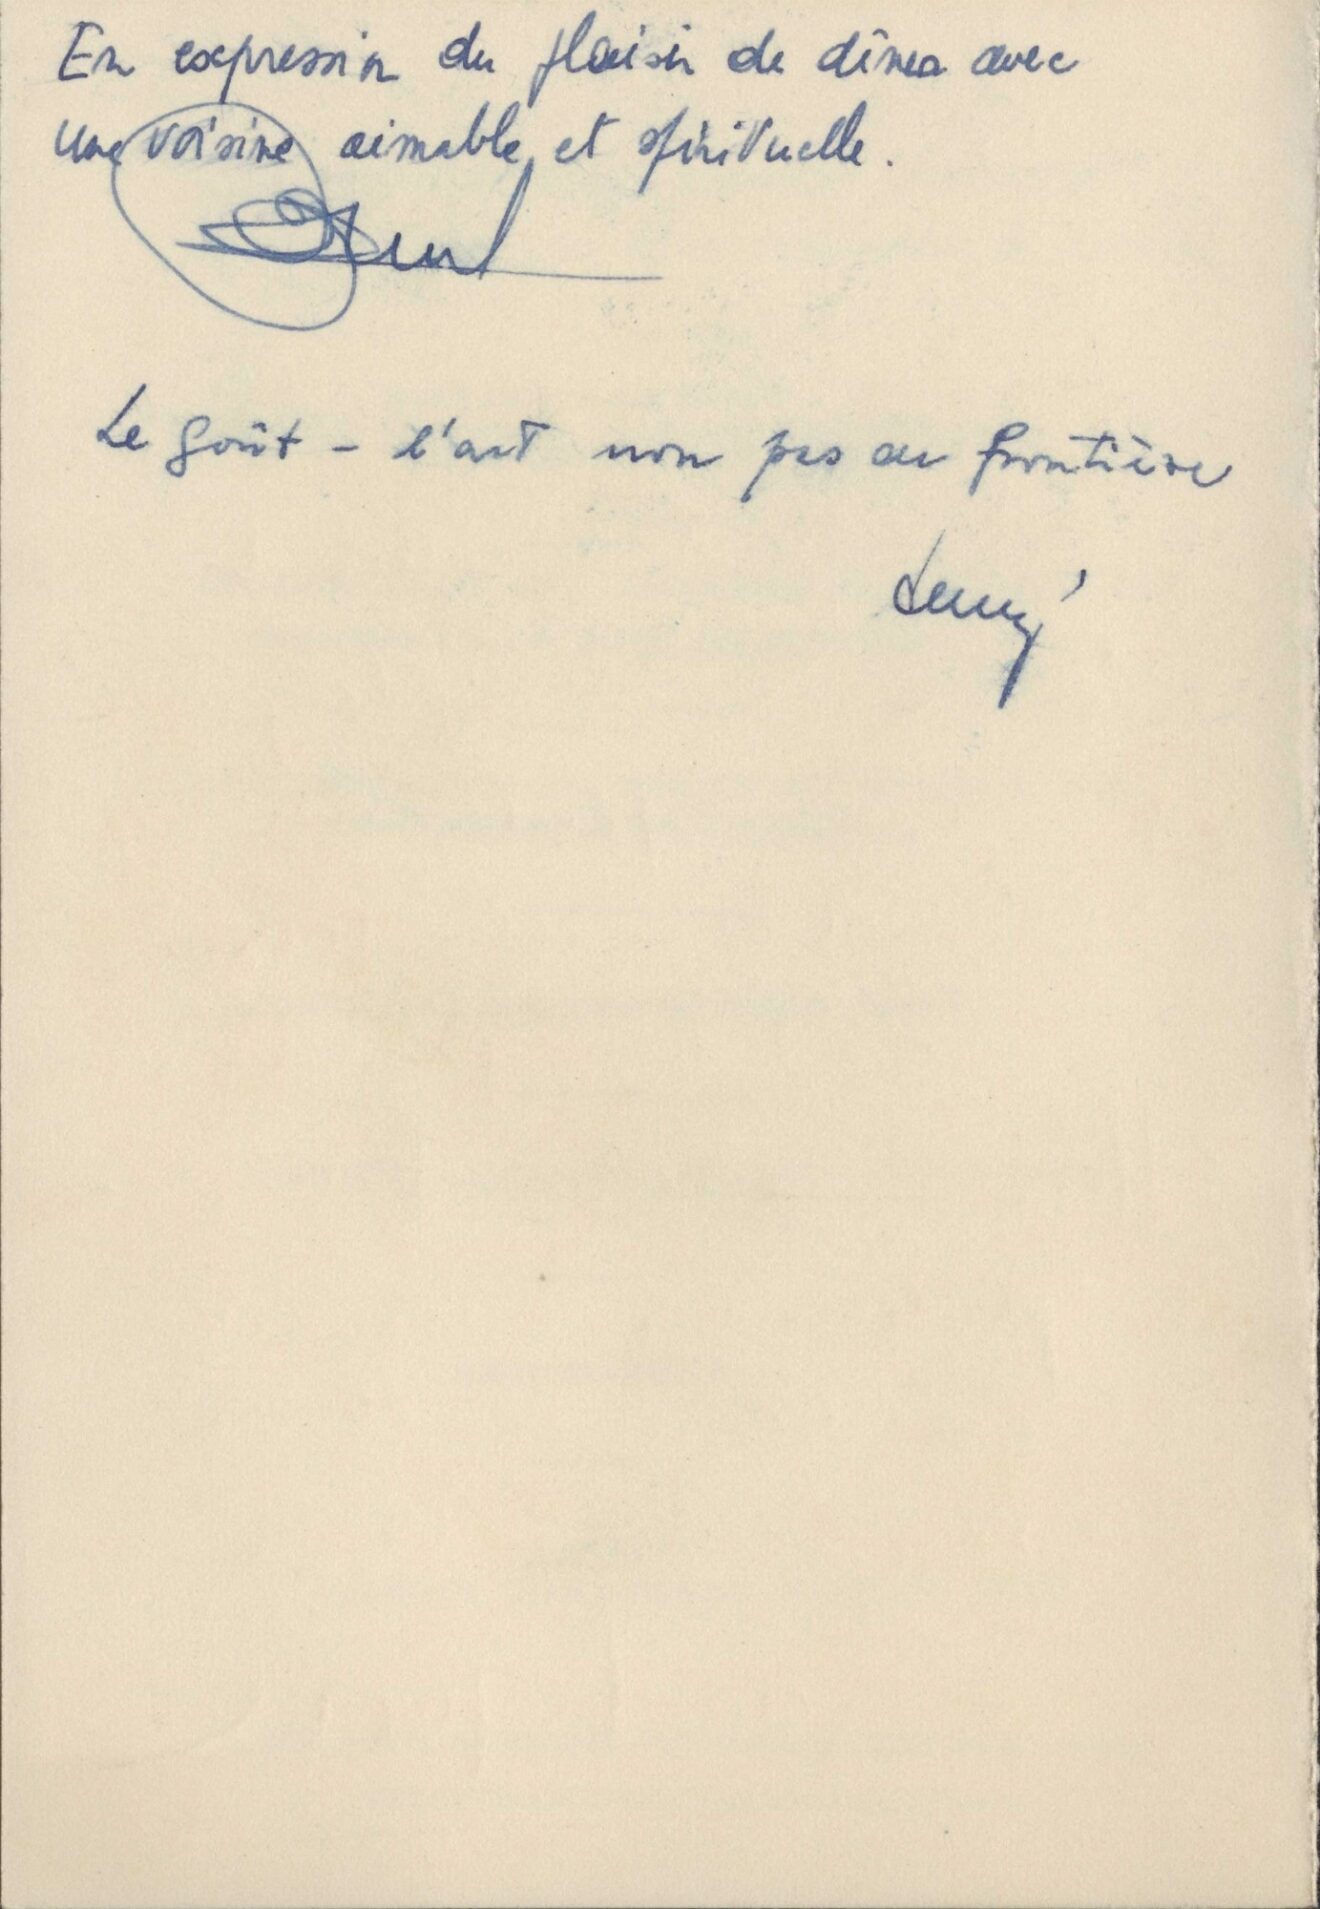 En expression du plaisir de dîner avec
une voisine aimable et spirituelle.
Le goût - l'art non pas de frontière